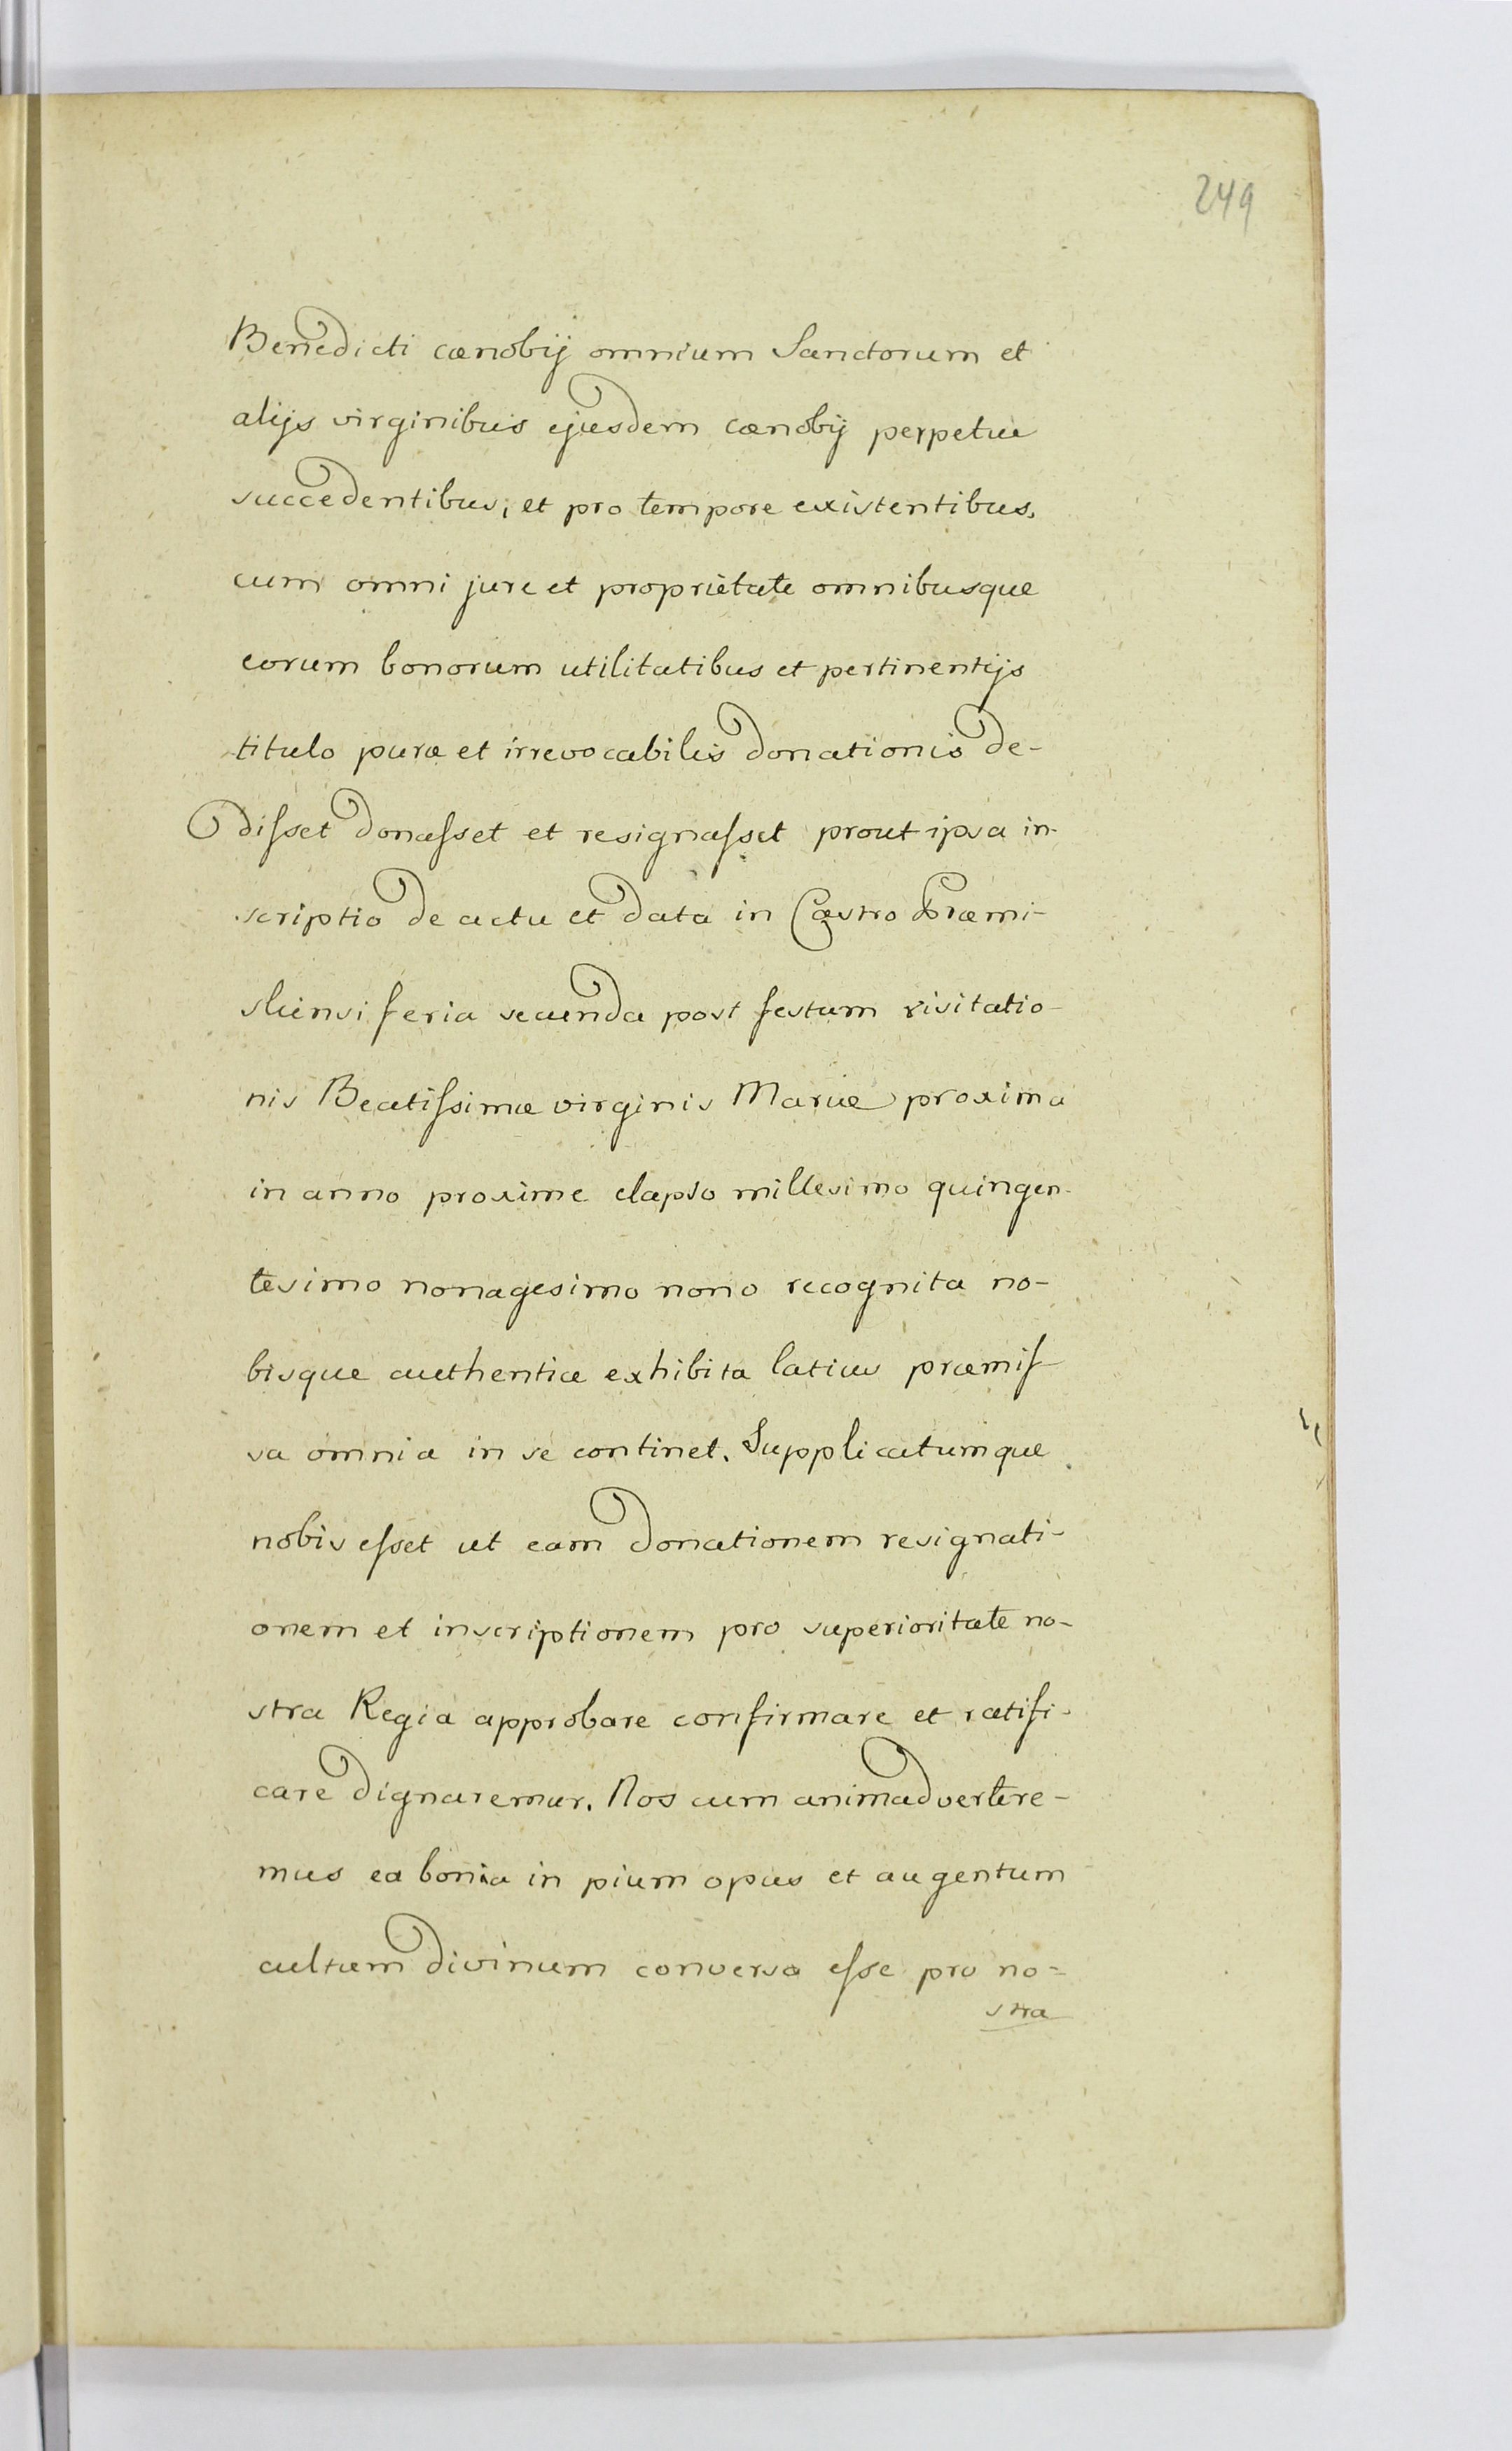 249
Benedicti cænobij omnium Sanctorum et
alijs virginibus ejusdem cænobij perpetue
succedentibus, et pro tempore existentibus,
cum omni jure et proprietate omnibusque
eorum bonorum utilitatibus et pertinentijs
titulo puræ et irrevocabilis donationis de-
diſset donaſset et resignaſset prout ipsa in-
scriptio de actu et data in Castro Præmi-
sliensi feria secunda post festum visitatio-
nis Beatiſsimæ virginis Mariæ proxima
in anno proxime elapso millesimo quingen-
tesimo nonagesimo nono recognita no-
bisque authentice exhibita latius præmiſ-
sa omnia in se continet. Supplicatumque
nobis eſset ut eam donationem resignati-
onem et inscriptionem pro superioritate no-
stra Regia approbare confirmare et ratifi-
care dignaremur. Nos cum animadvertere-
mus ea bona in pium opus et augentum
cultum divinum conversa eſse pro no-
stra